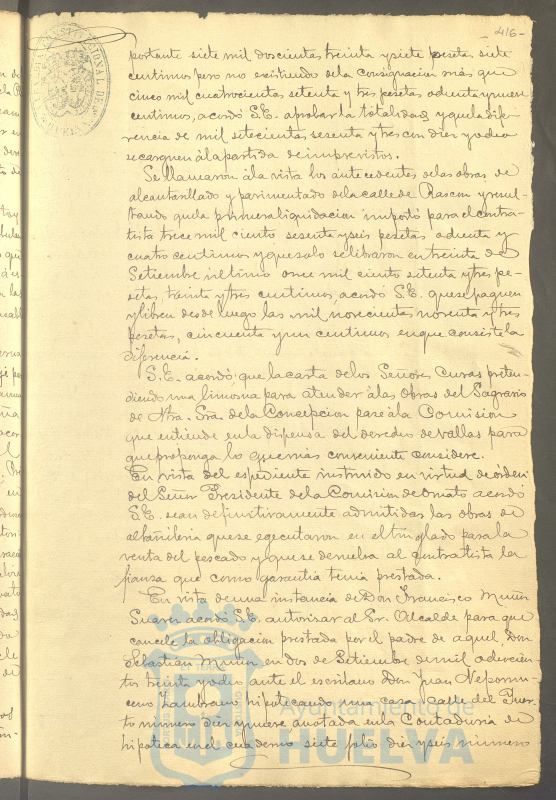 -416-
portante siete mil doscientas treinta y siete pesetas siete
centimos pero no existiendo de la consignacion más que
cinco mil cuatrocientas setenta y tres pesetas ochenta y nueve
centimos, acordó S.E. aprobar la totalidad y que la dife-
rencia de mil setecientas sesenta y tres con diez y ocho
se carguen á la partida de imprevistos.
Se llamaron á la vista los antecedentes de las obras de
alcantarillado y pavimentado de la calle de Rascon y resul-
tando que la primera liquidacion importó para el contra-
tista trece mil ciento sesenta y seis pesetas ochenta y
cuatro centimos y que solo se libraron en treinta de
Setiembre ultimo once mil ciento setenta y tres pe-
setas, treinta y tres centimos, acordó S.E. que se paguen
y libren desde luego las mil novecientas noventa y tres
pesetas, cincuenta y un centimos en que consiste la
diferencia.
S.E. acordó; que la carta de los Señores Curas preten-
diendo una limosna para atender á las obras del Sagrario
de Ntra. Sra. de la Concepcion pase á la Comision
que entiende en la dispensa del derecho de vallas para
que proponga lo que mas conveniente considere.
En vista del espediente instruido en virtud de órden
del Señor Presidente de la Comision de Ornato acordó
S.E. sean definitivamente admitidas las obras de
albañileria que se ejecutaron en el tinglado para la
venta del pescado y que se devuelva al contratista la
fianza que como garantia tenia prestada.
En vista de una instancia de Don Francisco Muñoz
Suarez acordó S.E. autorizar al Sr. Alcalde para que
cancele la obligacion prestada por el padre de aquel, Don
Sebastian Muñoz en dos de Setiembre de mil ochocien-
tos treinta y ocho ante el escribano Don Juan Nepomu-
ceno Zambrano, hipotecando una casa calle del Puer-
to numero diez y nueve anotada en la Contaduria de
hipoteca en el cuaderno siete folio diez y seis número
Ayuntamiento de
HUELVA